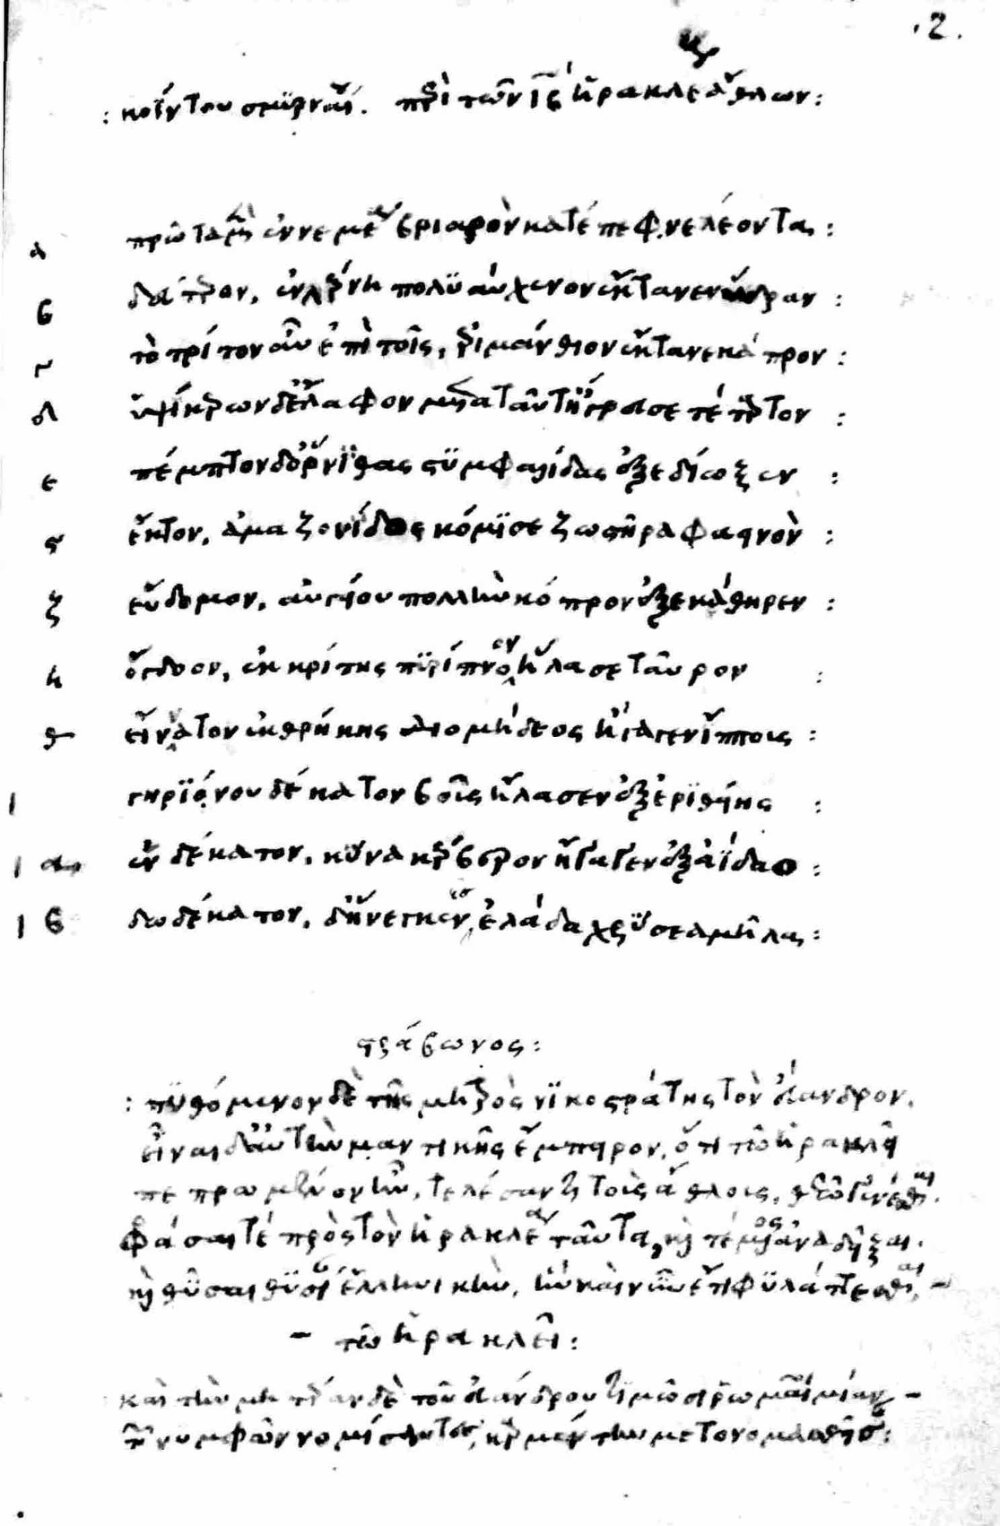 .2.
: κοΐντου σμυρναί. περὶ τῶν ιβ ἡρακλέους ἄθλων :
α πρῶτα μὲν ἐν νεμέᾳ βριαρὸν κατέπεφνε λέοντα :
β δεύτερον, ἐν λέρνῃ πολυαύχενον ἔκτανεν ὕδραν :
γ τὸ τρίτον αὖ ἐπὶ τοῖς, ἐριμάνθιον ἔκτανε κάπρον :
δ ὑψίκερων δ' ἔλαφον μετὰ ταῦτ' ἤγρευσε τέταρτον :
ε πέμπτον δ' ὄρνιθας στυμφαλίδας ἐξεδίωξεν :
ς ἕκτον, ἀμαζονίδος κόμισε ζωστῆρα φαεινὸν :
ζ ἕβδομον, αὐγείου πολλὴν κόπρον ἐξεκάθηρεν :
η ὄγδοον, ἐκ κρίτης πυρίπνοον ἤλασε ταῦρον :
θ εἴνατον ἐκ θρήκης διομήδεος ἤγαγεν ἵππους :
ι γηρυόνου δέκατον βοῦς ἤλασεν ἐξ ἐρυθείης :
ια ἑνδέκατον, κύνα κέρβερον ἤγαγεν ἐξ ἀΐδαο :
ιβ δωδέκατον, δ' ἤνεγκεν ἐς ἑλάδα χρύσεα μῆλα :
στράβωνος :
: πυθόμενον δὲ τῆς μητρὸς νικοστράτης τὸν εὔανδρον,
εἶναι δ' αὐτὴν μαντικῆς ἔμπειρον, ὅτι τῷ ἡρακλεῖ
πεπρωμένον ἦν, τελέσαντι τοὺς ἄθλους, θεῷ γενέσθαι.
φάσαι τε πρὸς τὸν ἡρακλέα ταῦτα, καὶ τέμενος ἀναδεῖξαι.
καὶ θῦσαι θυσίαν ἑλληνικὴν, ἣν καὶ νῦν ἔτι φυλάττεσθαι, –
– τῷ ἡρακλεῖ :
καὶ τὴν μητέραν δὲ τοῦ εὐάνδρου τιμῶσι ῥωμαῖοι μίαν –
τῶν νυμφῶν νομίσαντες, καρμέντην μετονομασθῆσαν :